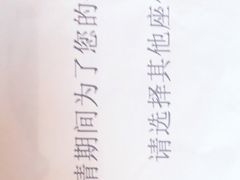 情期间为了您的
请选择其他座